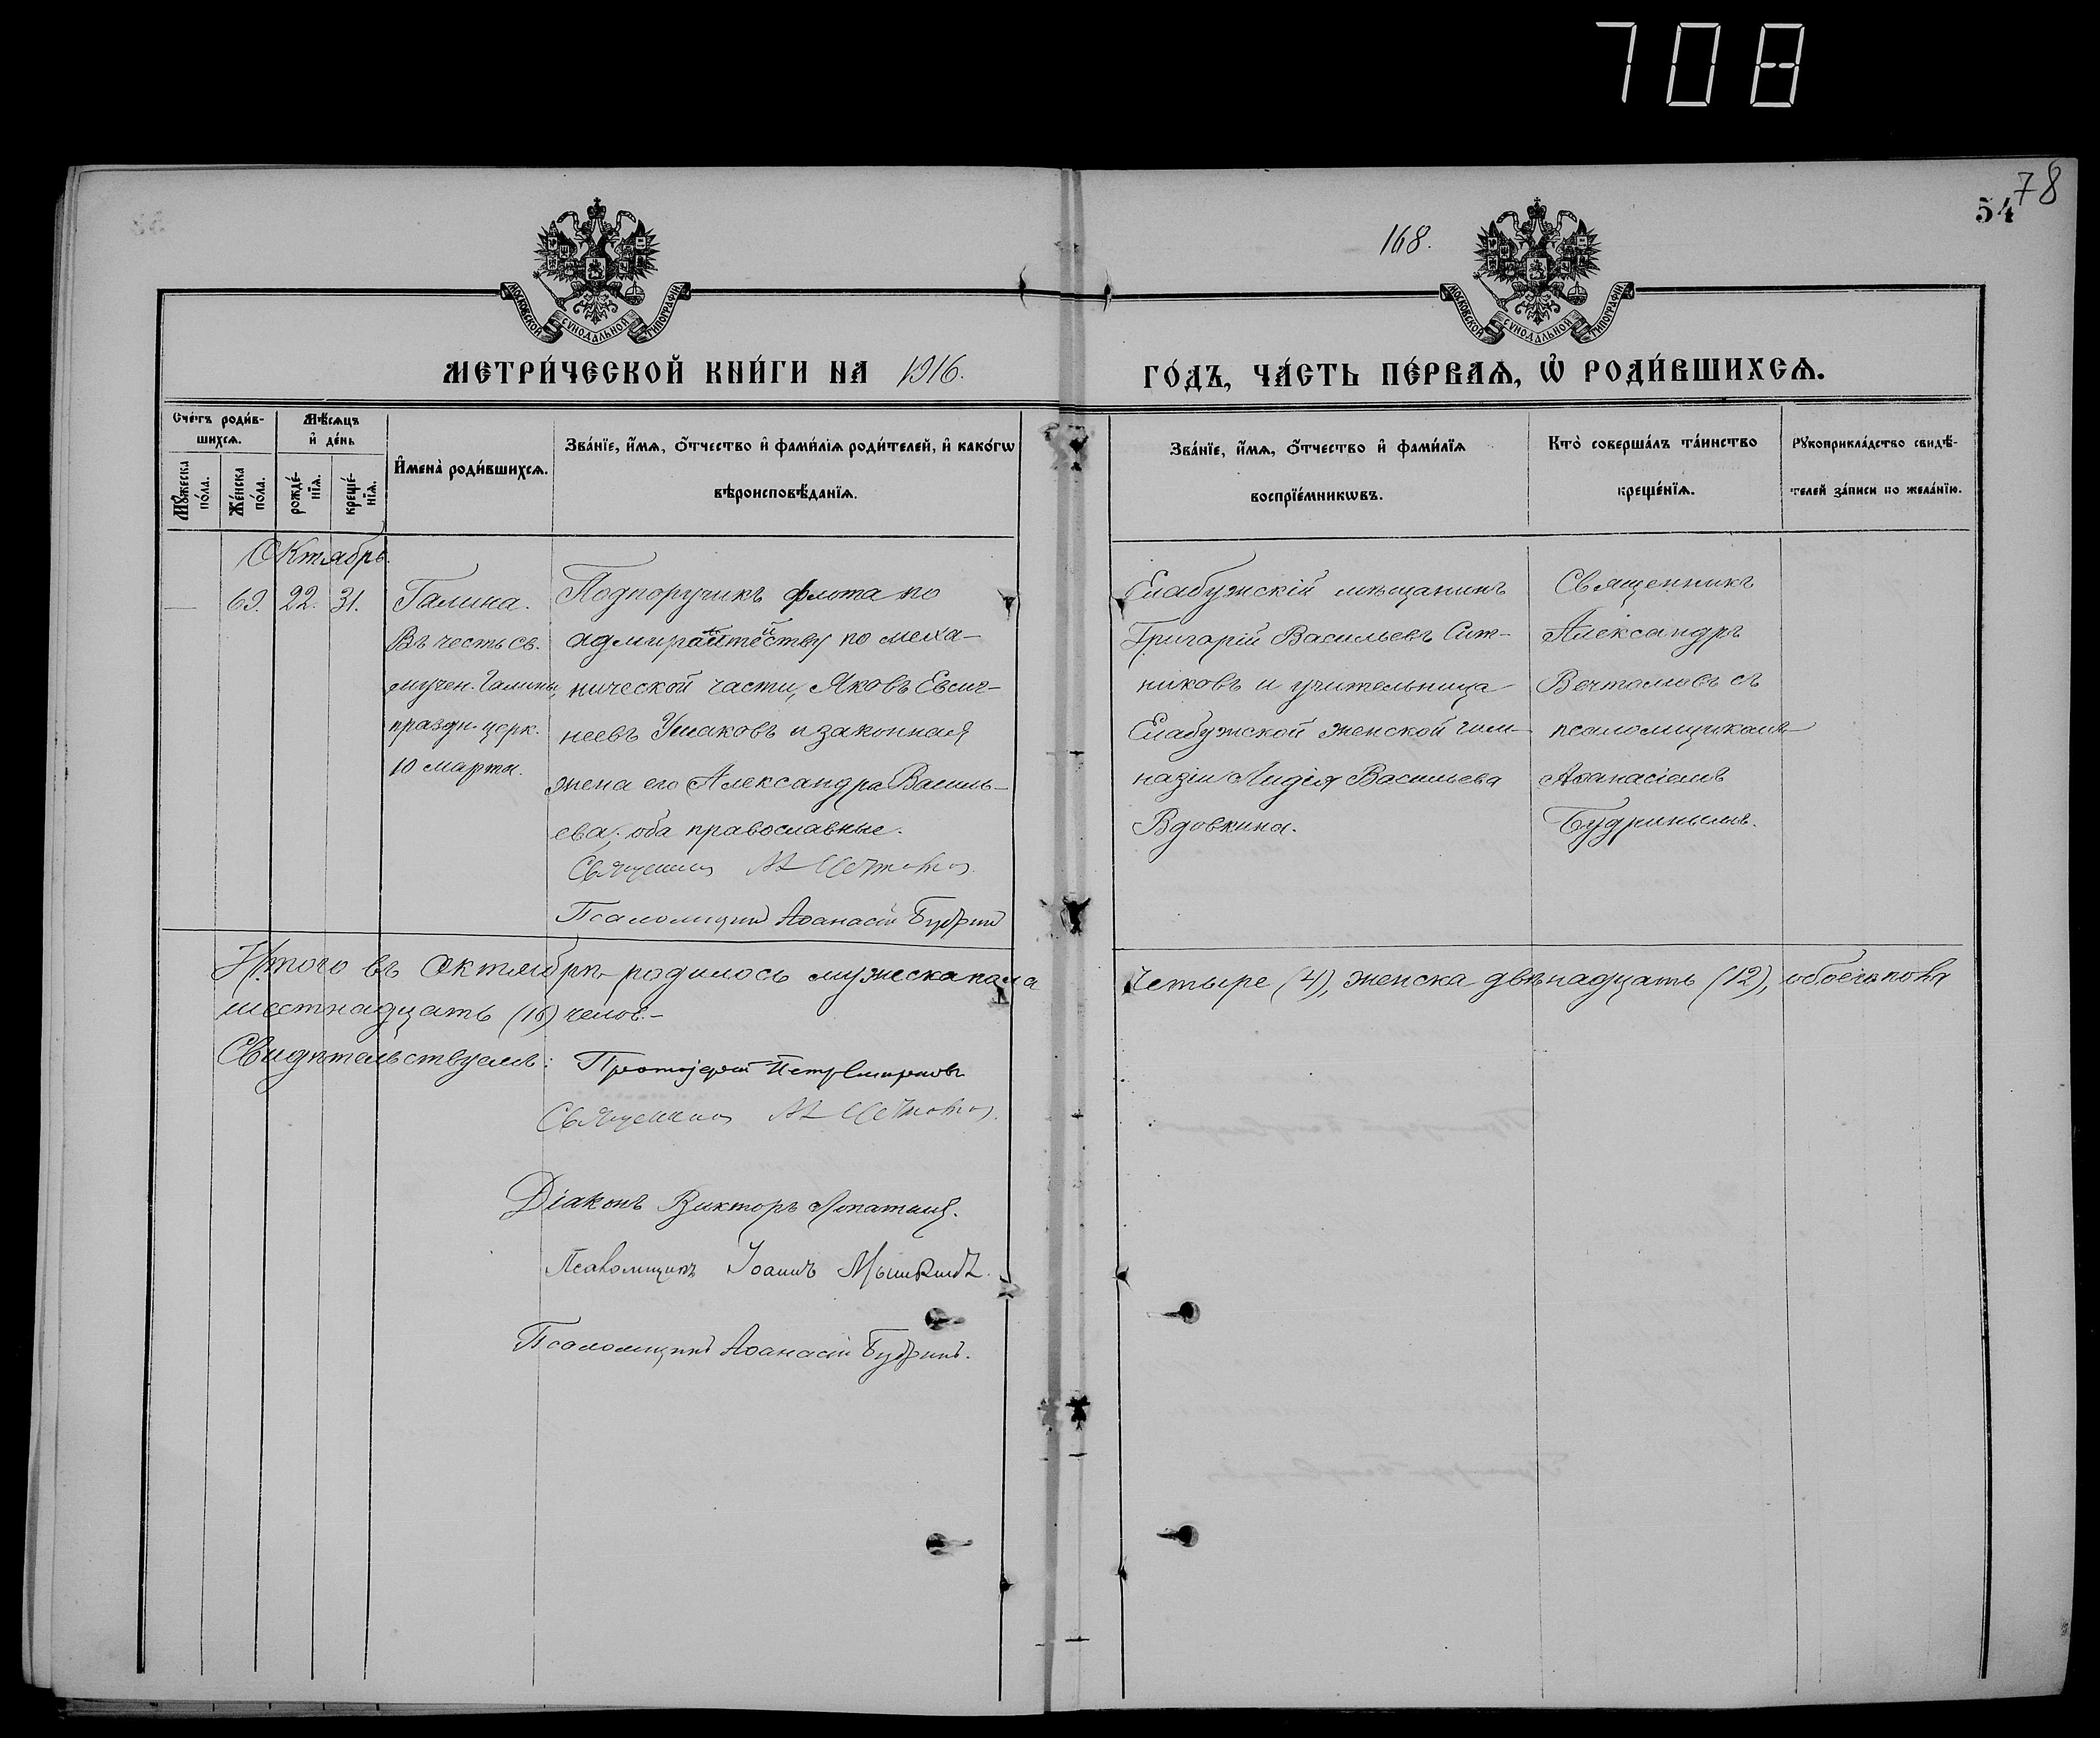 708
78
54
168.
МОСКОВСКОЙ СѴНОДАЛЬНОЙ ТИПОГРАФІИ
МОСКОВСКОЙ СѴНОДАЛЬНОЙ ТИПОГРАФІИ
МЕТРИ́ЧЕСКОЙ КНИ́ГИ НА 1916.
ГО́ДЪ, ЧА́СТЬ ПЕ́РВАѦ, Ѡ҆ РОДИ́ВШИХСѦ.
Сче́тъ роди́в-
шихсѧ.
Мꙋ́жеска
по́ла.
Же́нска
по́ла.
Мѣ́сѧцъ
и҆ де́нь
рожде́-
нїѧ.
креще́-
нїѧ.
И҆мена̀ роди́вшихсѧ.
Зва́нїе, и҆́мѧ, ѻ҆́тчество и҆ фами́лїѧ роди́телей, и҆ како́гѡ
вѣроисповѣ́данїѧ.
Зва́нїе, и҆́мѧ, ѻ҆́тчество и҆ фами́лїѧ
воспрїе́мникѡвъ.
Кто̀ соверша́лъ та́инство
креще́нїѧ.
Рꙋкоприкла́дство свидѣ́-
телей за́писи по жела́нїю.
Октябрь.
— 69. 22. 31.
Галина.
Въ честь св.
мучен. Галины,
праздн. церк.
10 марта.
Подпоручикъ флота по
адмиралтейству по меха-
нической части, Яковъ Евсиг-
неевъ Ушаковъ и законная
жена его Александра Василь-
ева, оба православные.
Священникъ
Псаломщикъ Аѳанасій Будринъ
Елабужскій мѣщанинъ
Григорій Васильевъ Сит-
никовъ и учительница
Елабужской женской гим-
назіи Лидія Васильева
Вдовкина.
Священникъ
Александръ
съ
псаломщикомъ
Аѳанасіемъ
Будринымъ.
Итого въ Октябрѣ родилось мужеска пола четыре (4), женска двѣнадцать (12), обоего пола
шестнадцать (16) челов.–
Свидѣтельствуемъ:
Протоіерей Петръ
Священникъ
Діаконъ Викторъ Лопатинъ.
Псаломщикъ Іоаннъ Мышкинъ.
Псаломщикъ Аѳанасій Будринъ.